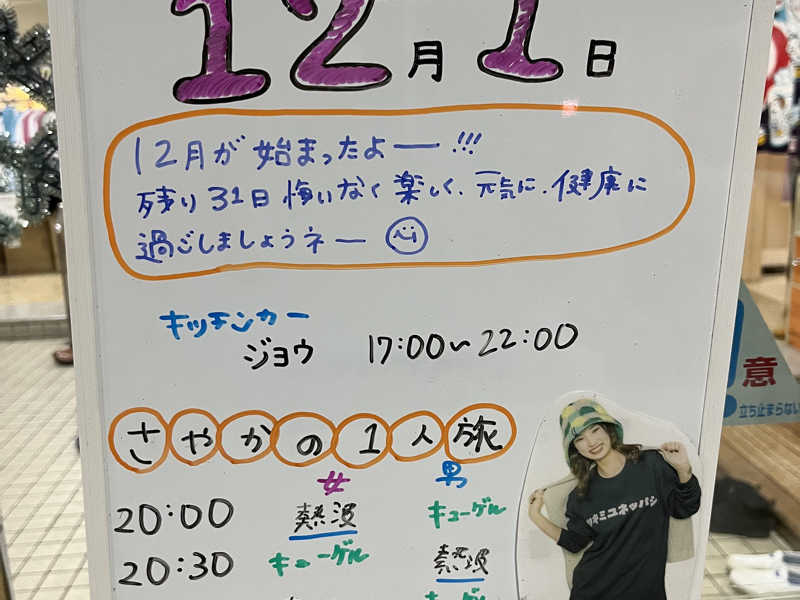 12月1日
12月が始まったよー!!!
残り31日悔いなく楽しく、元気に、健康に
過ごしましょうネー
キッチンカー
ジョウ 17:00~22:00
さやかの1人旅
女 男
20:00 熱波 キューゲル
20:30 キューゲル 熱波
意
立ち止まらない